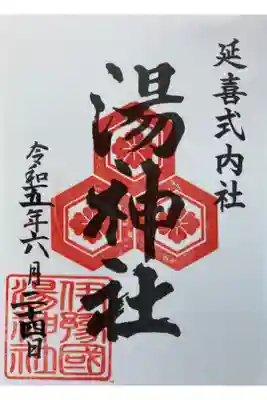 延喜式内社
湯神社
令和五年六月二十四日
伊豫國
湯神社